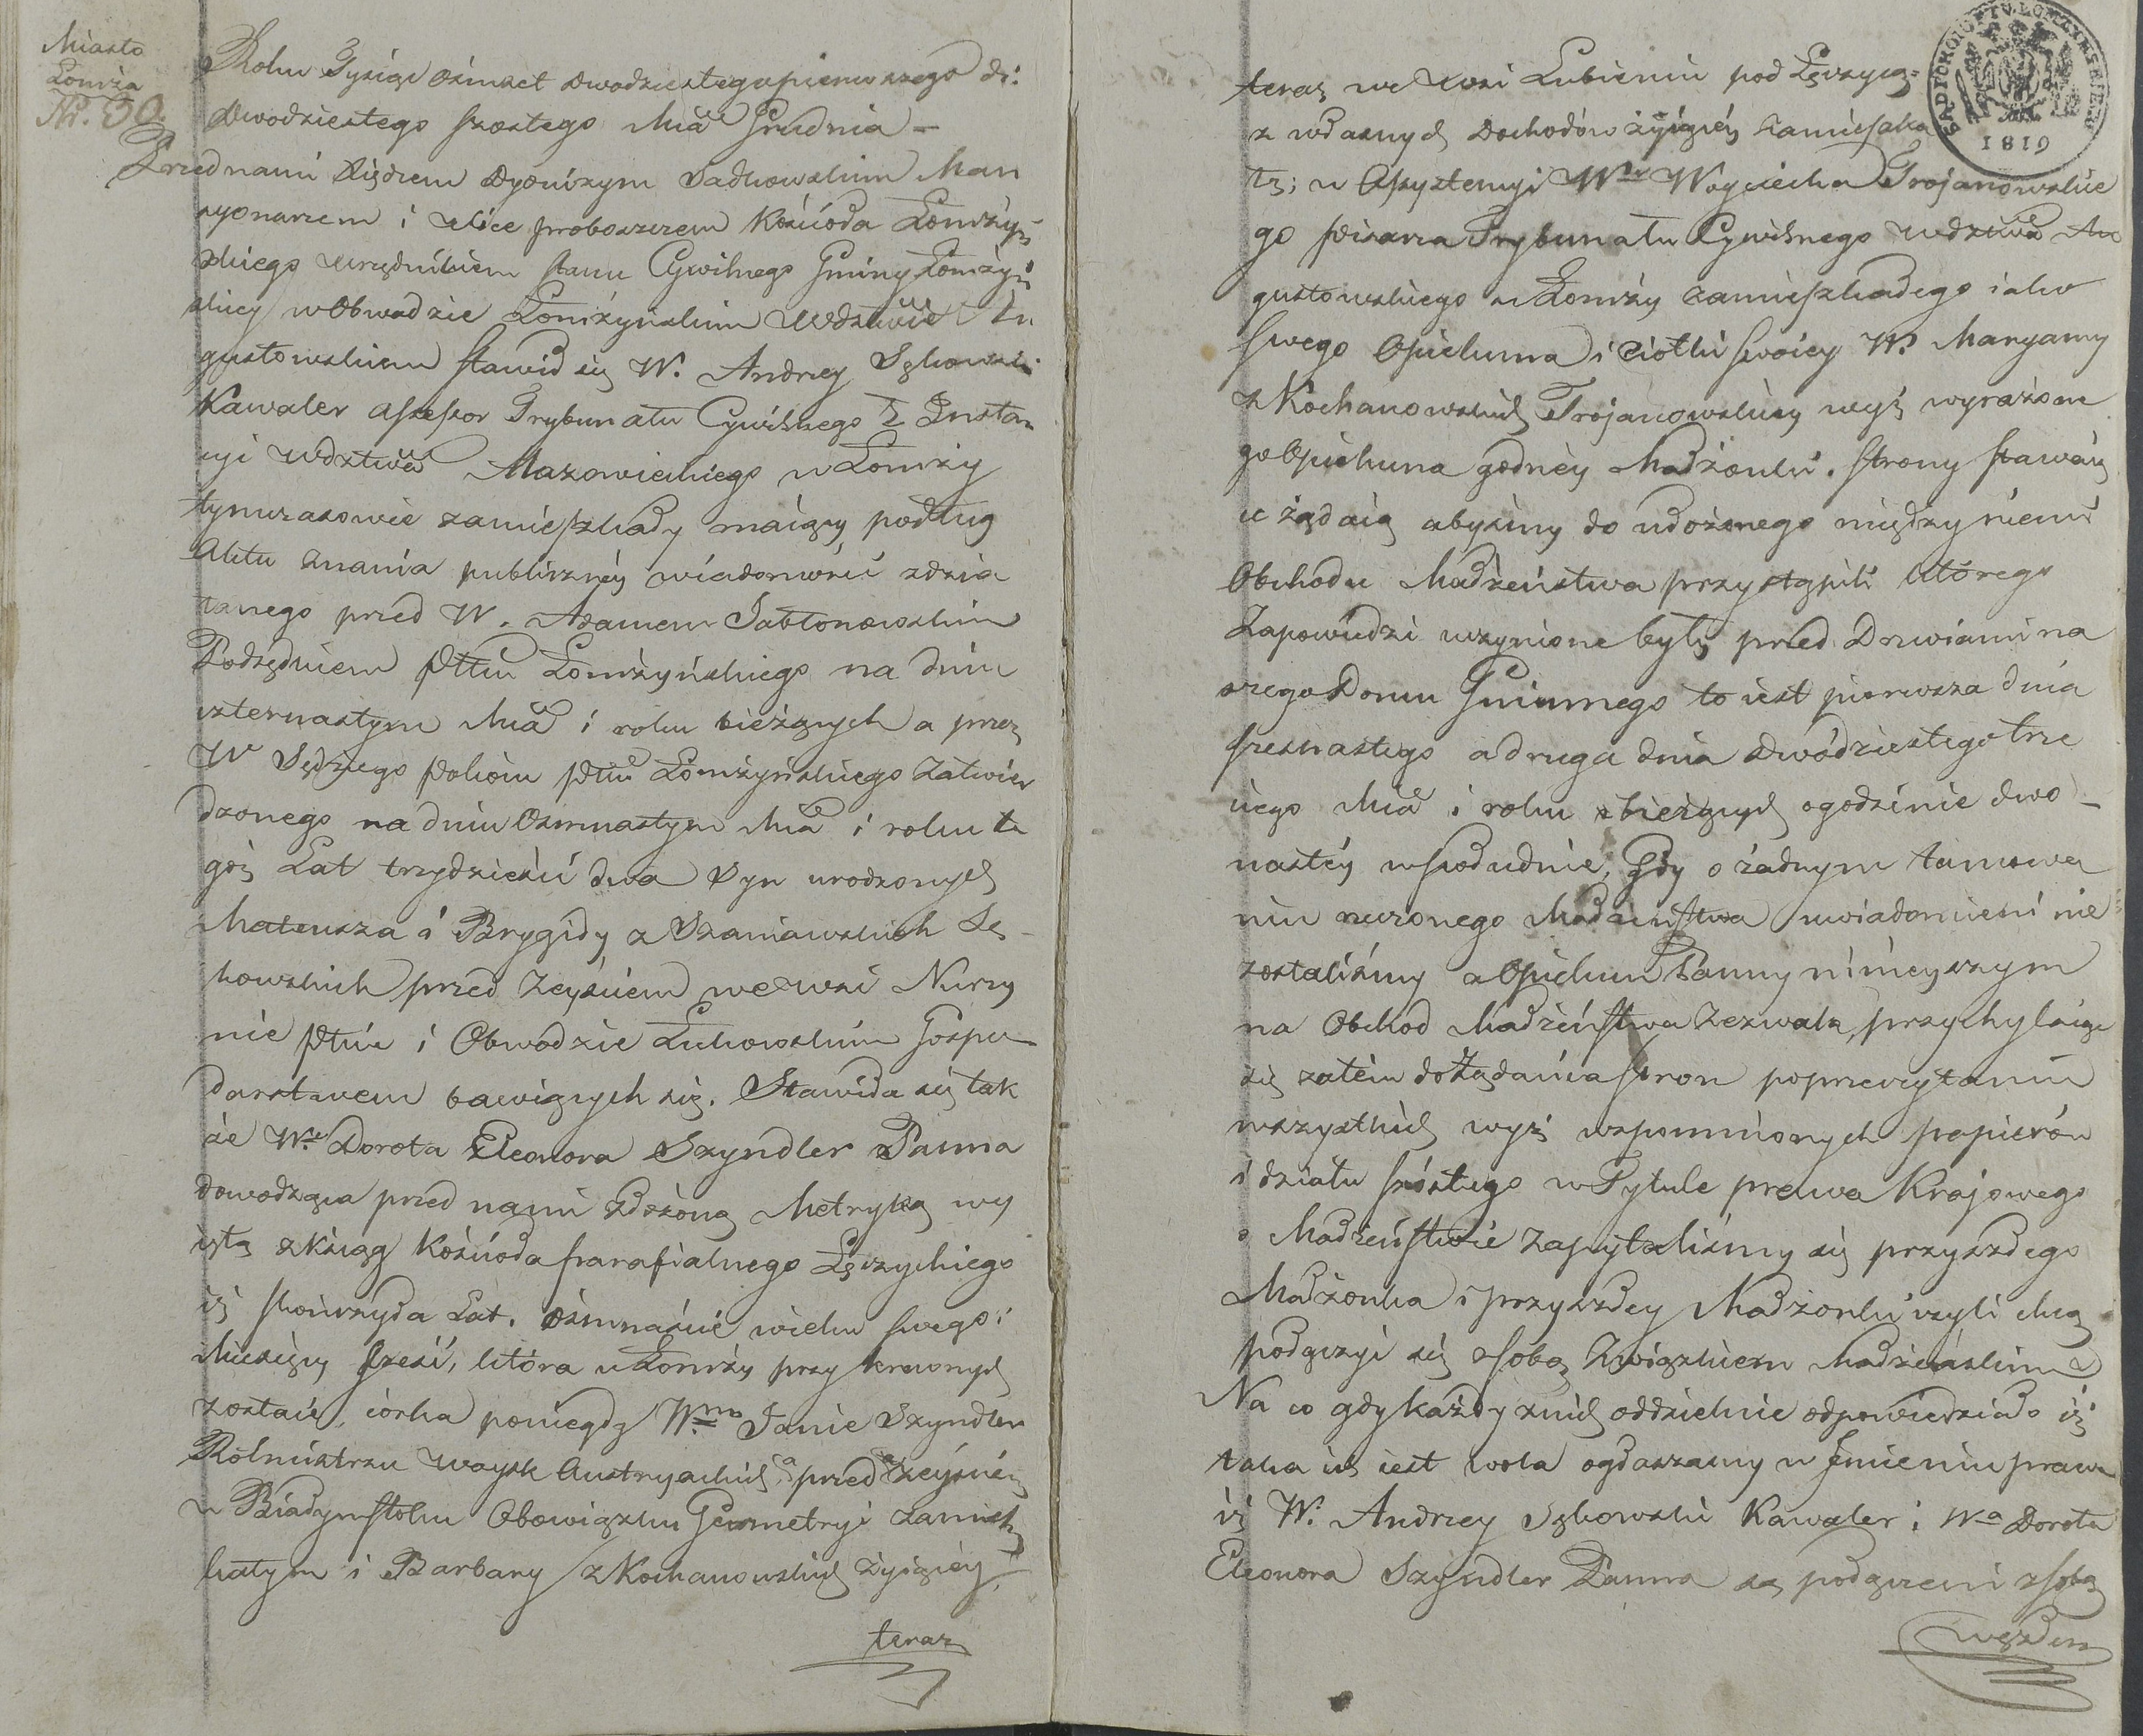 Miasto
Łomża
Nr. 30.
Roku Tysiąc ośmset dwudziestegopierwszego d:
dwudziestego szostego Mca Grudnia –
Przed nami Xiędzem Dyonizym Sadkowskim Man
syonarzem i Vice proboszczem Kościoła Łomżyń
skiego Urzędnikiem stanu Cywilnego Gminy Łomżyń
skiey w Obwodzie Łomżyńskim Wdztwie Au
gustowskiem stawił się W. Andrzey Sękowski
Kawaler Assessor Trybunału Cywilnego I Instan
cyi Wdztwa Mazowieckiego w Łomży
tymczasowie zamieszkały maiący podług
Aktu znania publiczney wiadomości zdzia
łanego przed W. Adamem Jabłonowskim
Podsędkiem Pttu Łomżyńskiego na dniu
czternastym Mca i roku bieżących a przez
W Sędziego Pokoiu Pttu Łomżyńskiego zatwier
dzonego na dniu Osmnastym Mca i roku te
goż Lat trzydzieści dwa Syn urodzonych
Mateusza i Brygidy z Szaniawskich Sę
kowskich przed Zeyściem we wsi Nurzy
nie Pttcie i Obwodzie Łukowskim Gospo
darstwem bawiących się. Stawiła się tak
że Wa Dorota Eleonora Szyndler Panna
dowodząca przed nami złożoną Metryką wy
iętą z Xiąg Kościoła parafialnego Łęczyckiego
iż skończyła Lat. ośmnaście wieku swego i
Miesięcy sześć, która w Łomży przy krewnych
zostaie, córka poniegdy Wm Janie Szyndler
Rotmistrzu Woysk Austryackich, a przed Zeyściem
w Białymstoku Obowiązku Geometry zamiesz
kałym i Barbary z Kochanowskich żyiącey
teraz
teraz we Wsi Lubieniu pod Łęczycą
z własnych Dochodów żyiącéy zamieszka
łéy; w Assystencyi W Woyciecha Trojanowskie
go Pisarza Trybunału Cywilnego Wdztwa Au
gustowskiego w Łomży zamieszkałego iako
swego Opiekuna i Ciotki swoiey W. Maryanny
z Kochanowskich Trojanowskiey wyż wyrażone
go Opiekuna godnéy Małżonki. Strony stawaią
ce żądaią abyśmy do ułożonego między niemi
Obchodu Małżeństwa przystąpili którego
Zapowiedzi uczynione były przed Drzwiami na
szego Domu Gminnego to iest pierwsza dnia
szesnastego a druga dnia dwudziestego trze
ciego Mca i roku bieżących o godzinie dwu
nastéy w południe, Gdy o żadnym tamowa
niu rzeczonego Małżeństwa uwiadomieni nie
zostaliśmy a Opiekun Panny ninieyszym
na Obchod Małżeństwa zezwala, przychylaiąc
się zatém do żądania stron poprzeczytaniu
wszystkich wyż wspomnionych papierów
i działu szóstego w Tytule prawa Kraiowego
o Małżeństwie zapytaliśmy się przyszłego
Małżonka i przyszłey Małżonki czyli chcą
połączyć się z sobą Związkiem Małżeńskim
Na co gdy każdy z nich oddzielnie odpowiedziało iż
taka ich iest wola ogłaszamy w Jmieniu prawa
iż W. Andrzey Sękowski Kawaler i Wa Dorota
Eleonora Szyndler Panna są połączeni z sobą
węzłem
1819